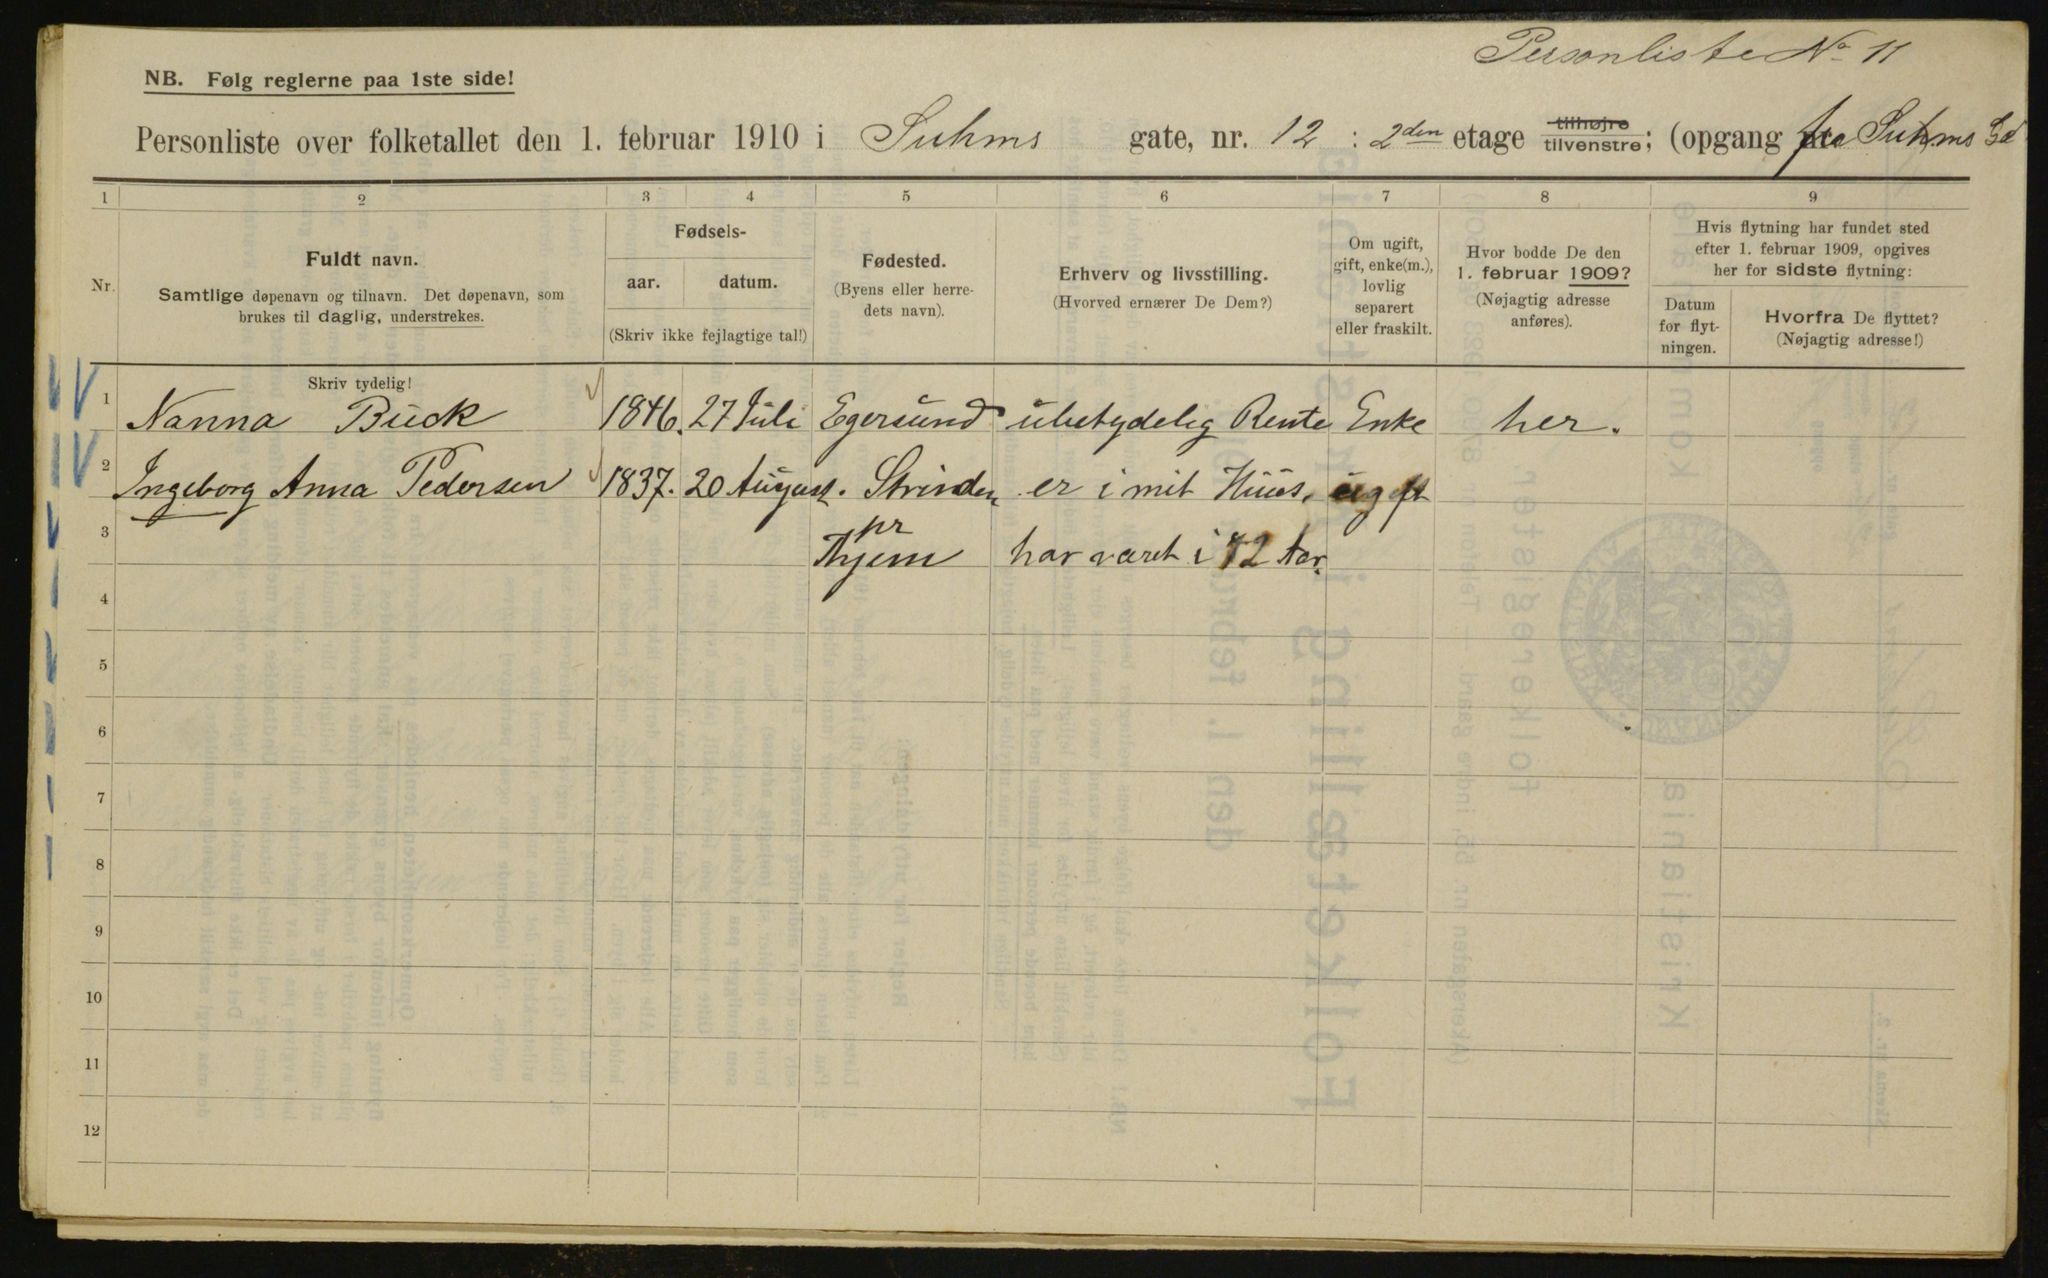 Personliste No 11
NB. Følg reglerne paa 1ste side!
Personliste over folketallet den 1. februar 1910 i Suhms gate, nr. 12 : 2den etage tilhøjre tilvenstre; (opgang fra Suhms Gd
1 2 3 4 5 6 7 8 9
Nr.
Fuldt navn.
Samtlige døpenavn og tilnavn. Det døpenavn, som
brukes til daglig, understrekes.
Fødsels-
aar. datum.
(Skriv ikke fejlagtige tal!)
Fødested.
(Byens eller herre-
dets navn).
Erhverv og livsstilling.
(Hvorved ernærer De Dem?)
Om ugift,
gift, enke(m.),
lovlig
separert
eller fraskilt.
Hvor bodde De den
1. februar 1909?
(Nøjagtig adresse
anføres).
Hvis flytning har fundet sted
efter 1. februar 1909, opgives
her for sidste flytning:
Datum
for flyt-
ningen.
Hvorfra De flyttet?
(Nøjagtig adresse!)
Skriv tydelig!
1 Nanna Buck 1846. 27 Juli Egersund ubetydelig Rente Enke her.
2 Ingeborg Anna Pedersen 1837. 20 August. Strinden er i mit Huus. ugift
3 pr
Thjem har været i 42 Aar.
4
5
6
7
8
9
10
11
12